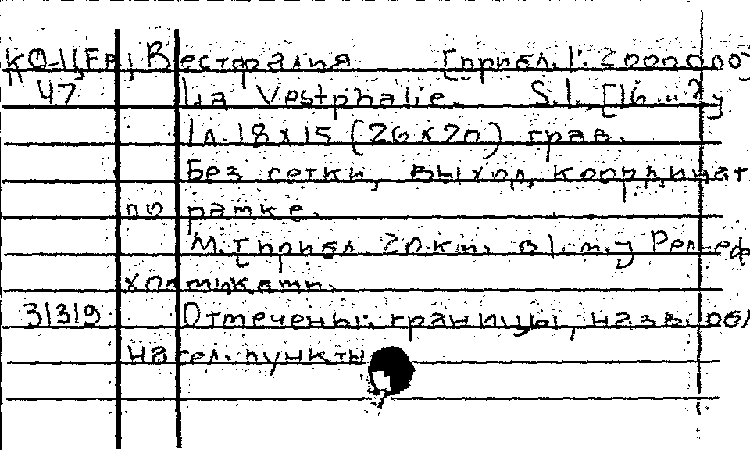 КО-11(Ев) Вестфалия [прибл. 1:2000000]
47 La Vestphalie. S.l., [16..?]
1 л. 18х15 (26х20) грав.
Без сетки, выход, координат
по рамке.
М. [прибл. 20 км. в 1 см.] Рельеф
холмиками.
31319 Отмечены: границы, назв. обл
насел. пункты